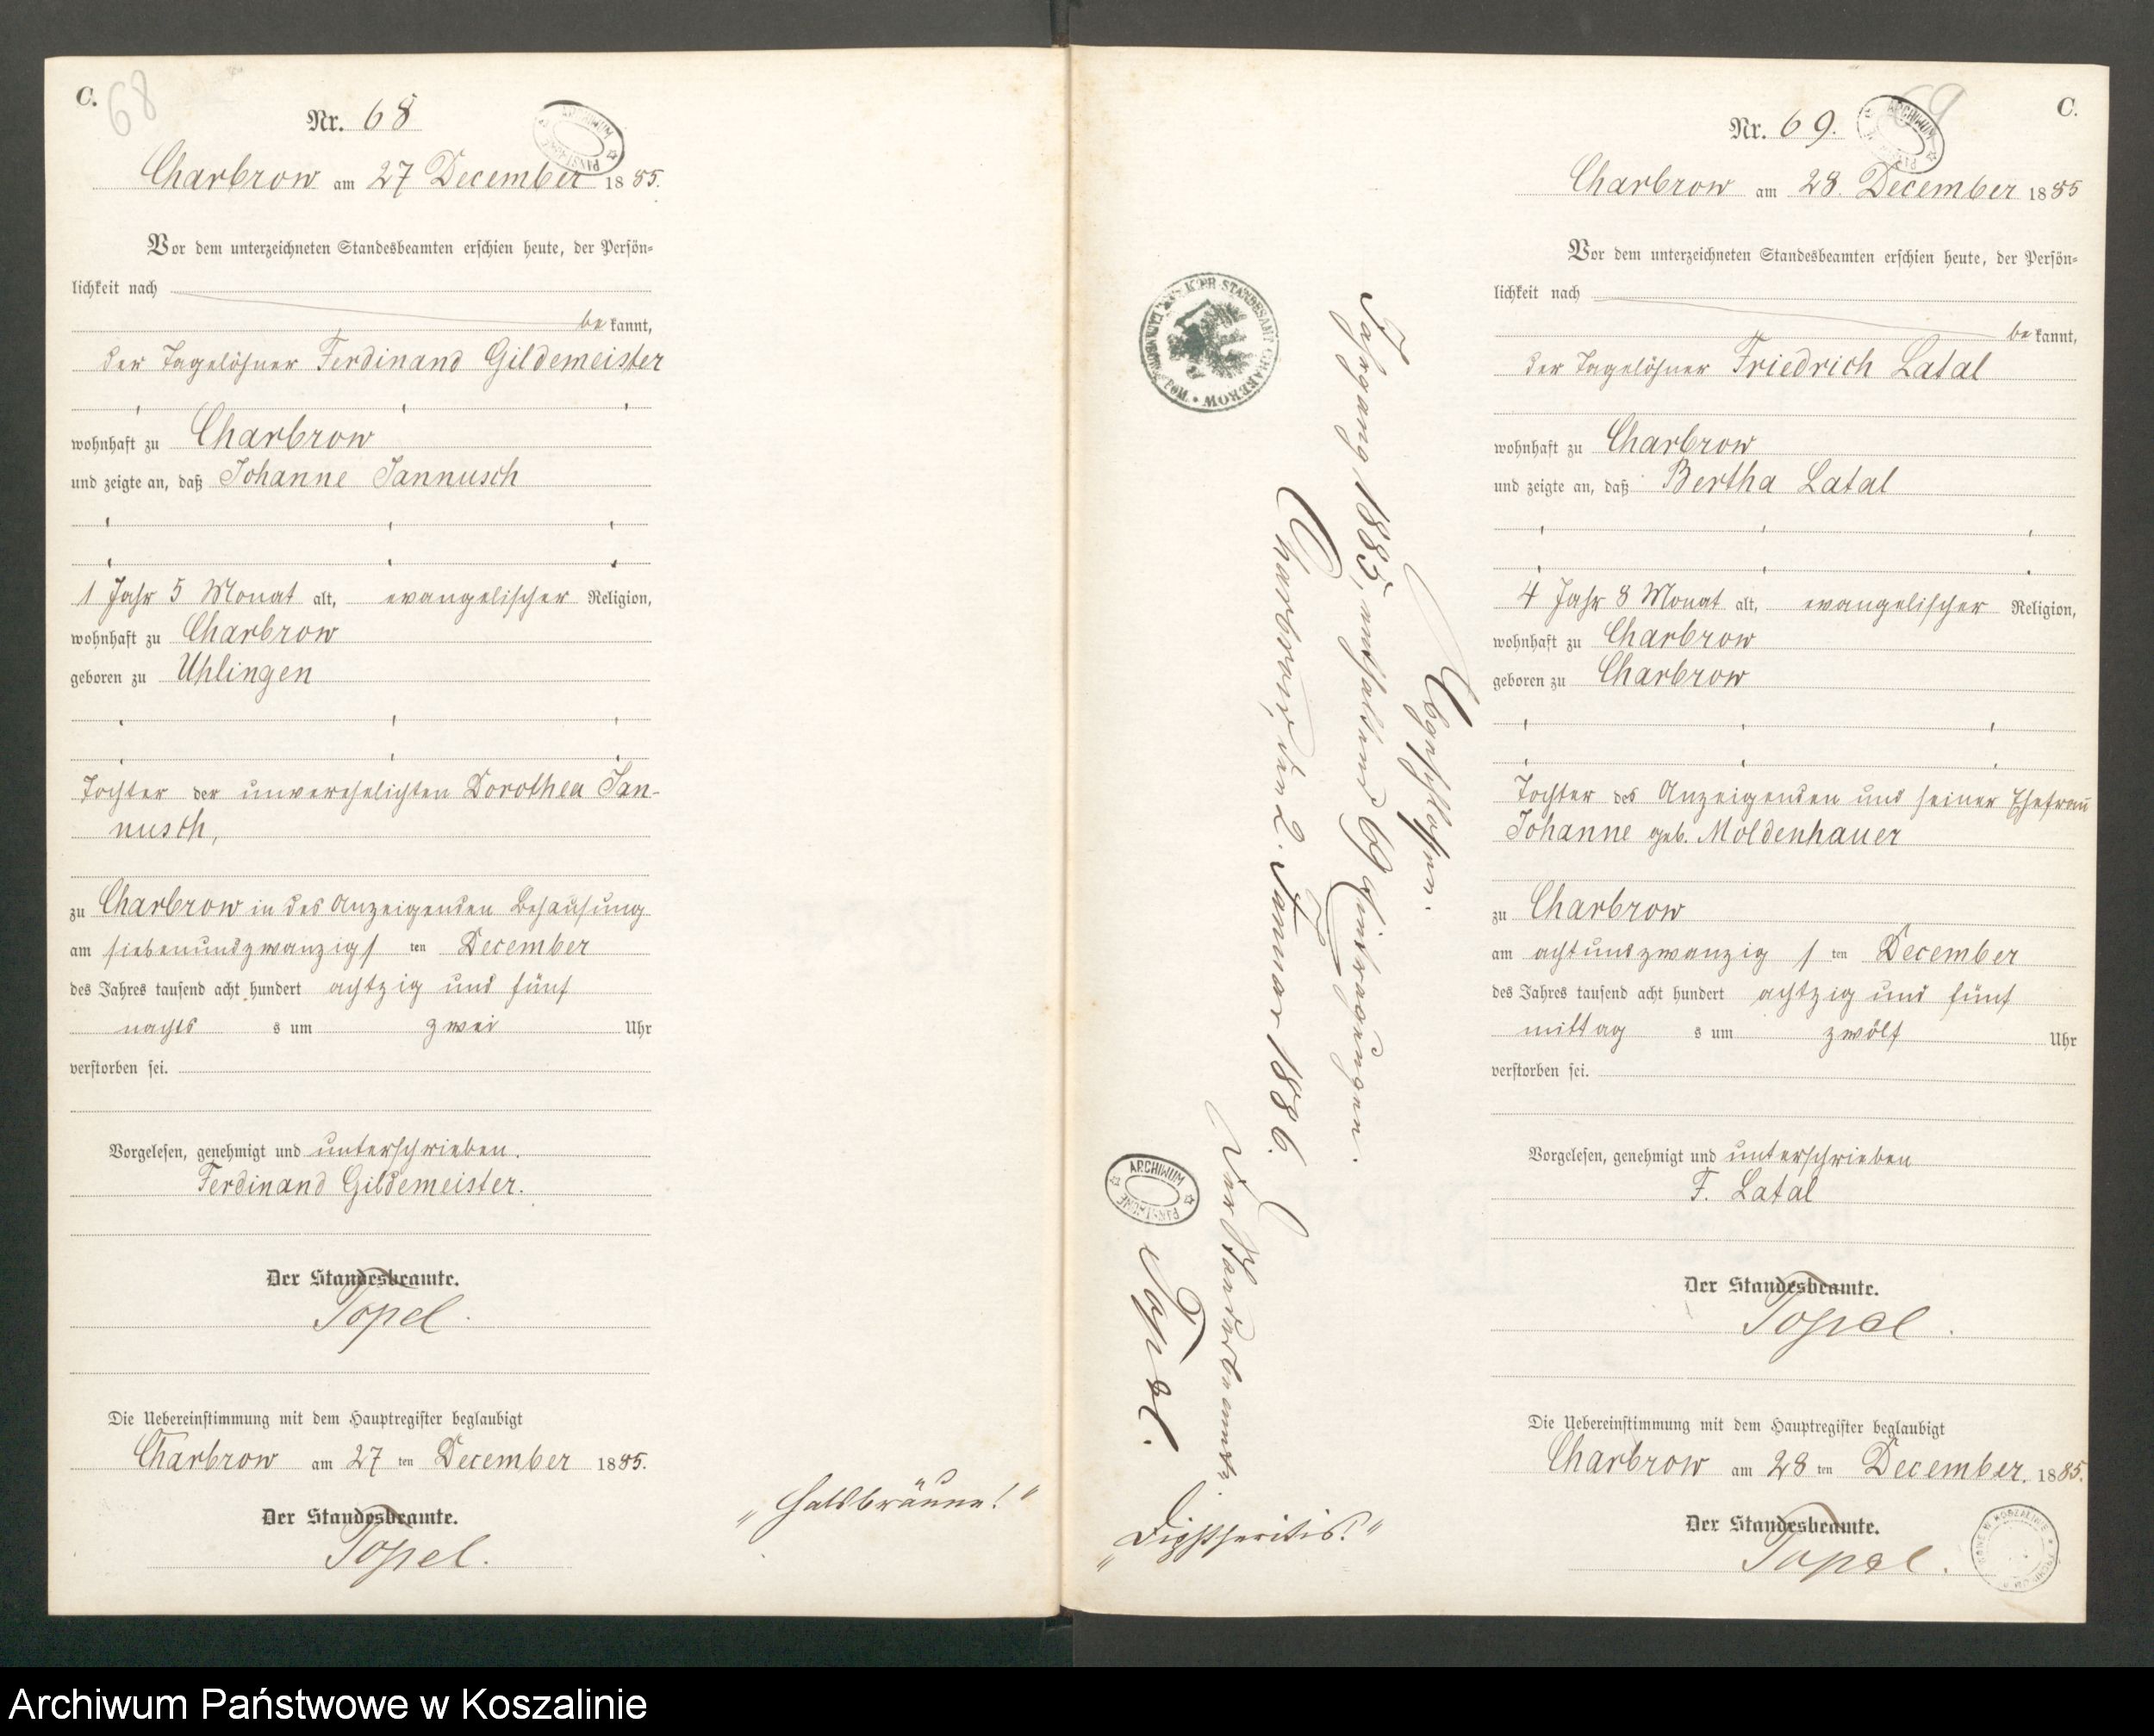 C.
68
Nr. 68
ARCHIWUM PAŃSTWOWE
Charbrow am 27 December 1885.
Vor dem unterzeichneten Standesbeamten erschien heute, der Persön-
lichkeit nach
be kannt,
der Tagelöhner Ferdinand Gildemeister
wohnhaft zu Charbrow
und zeigte an, daß Johanne Jannusch
1 Jahr 5 Monat alt, evangelischer Religion,
wohnhaft zu Charbrow
geboren zu Uhlingen
Tochter der unverehelichten Dorothea Jan-
nusch,
zu Charbrow in des Anzeigenden Behausung
am siebenundzwanzigs ten December
des Jahres tausend acht hundert achtzig und fünf
nachts s um zwei Uhr
verstorben sei.
Vorgelesen, genehmigt und unterschrieben.
Ferdinand Gildemeister.
Der Standesbeamte.
Topel.
Die Uebereinstimmung mit dem Hauptregister beglaubigt
Charbrow am 27 ten December 1885.
Der Standesbeamte.
Topel.
„Halsbräune!“
KÖN. PR. STANDESAMT CHARBROW
Abgeschlossen.
Jahrgang 1885, enthaltend 69 Eintragungen.
Charbrow, den 2. Januar 1886.
Der Standesbeamte
Topel.
ARCHIWUM PAŃSTWOWE
„Diphtheritis!“
C.
69
Nr. 69.
ARCHIWUM PAŃSTWOWE
Charbrow am 28. December 1885
Vor dem unterzeichneten Standesbeamten erschien heute, der Persön-
lichkeit nach
be kannt,
der Tagelöhner Friedrich Latal
wohnhaft zu Charbrow
und zeigte an, daß Bertha Latal
4 Jahr 8 Monat alt, evangelischer Religion,
wohnhaft zu Charbrow
geboren zu Charbrow
Tochter des Anzeigenden und seiner Ehefrau
Johanne geb. Moldenhauer
zu Charbrow
am achtundzwanzig s ten December
des Jahres tausend acht hundert achtzig und fünf
mittag s um zwölf Uhr
verstorben sei.
Vorgelesen, genehmigt und unterschrieben
F. Latal
Der Standesbeamte.
Topel.
Die Uebereinstimmung mit dem Hauptregister beglaubigt
Charbrow am 28 ten December. 1885.
Der Standesbeamte.
Topel.
Archiwum Państwowe w Koszalinie